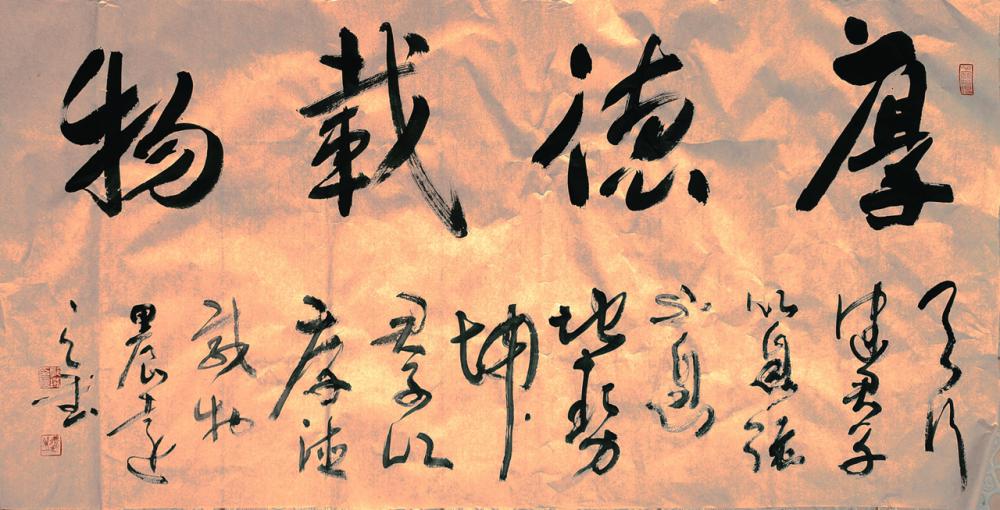 厚德載物
天行
健君子
以自强
不息
地势
坤
君子以
厚德
載物